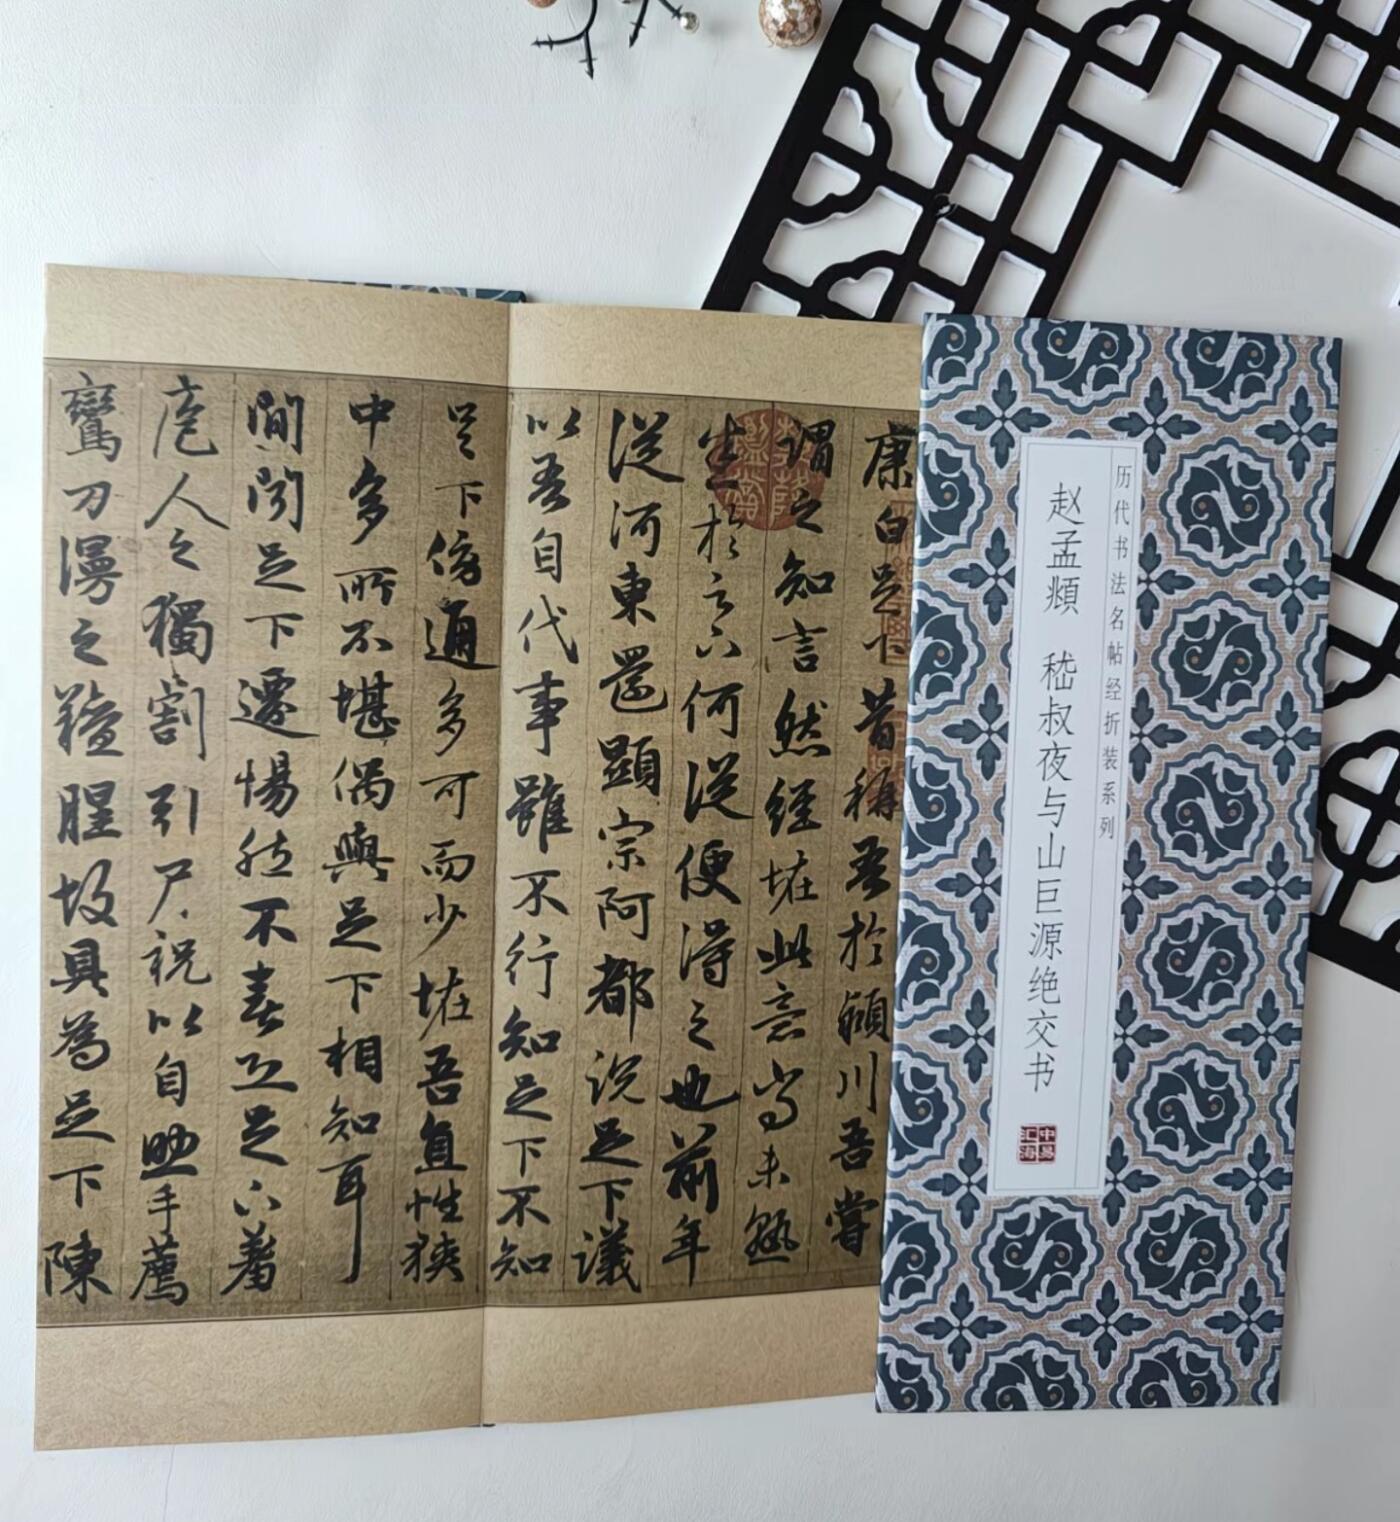 历代书法名帖经折装系列
赵孟頫 嵇叔夜与山巨源绝交书
中易
汇海
康白足下昔稱吾於潁川吾嘗
謂之知言然經怪此意尚未熟
於足下何從便得之也前年
從河東還顯宗阿都說足下議
以吾自代事雖不行知足下不知
足下傍通多可而少怪吾直性狹
中多所不堪偶與足下相知耳
間聞足下遷惕然不喜恐足下羞
庖人之獨割引尸祝以自助手薦
鸞刀漫之羶腥故具為足下陳